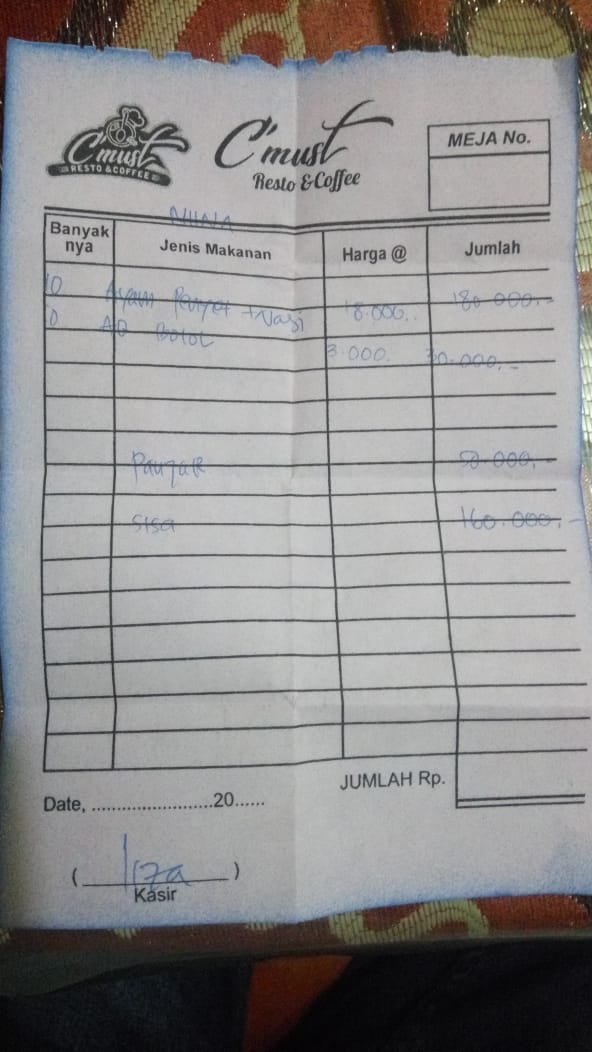 C'must
RESTO & COFFEE
C'must
Resto & Coffee
MEJA No.
Banyak nya
Jenis Makanan
Harga @
Jumlah
10 Ayam Penyet + Nasi 18.000,. 180.000,-
AQ Botol 3.000. 30.000,-
Panjar 50.000,-
Sisa 160.000,-
JUMLAH Rp.
Date, .......................20......
( )
Kasir